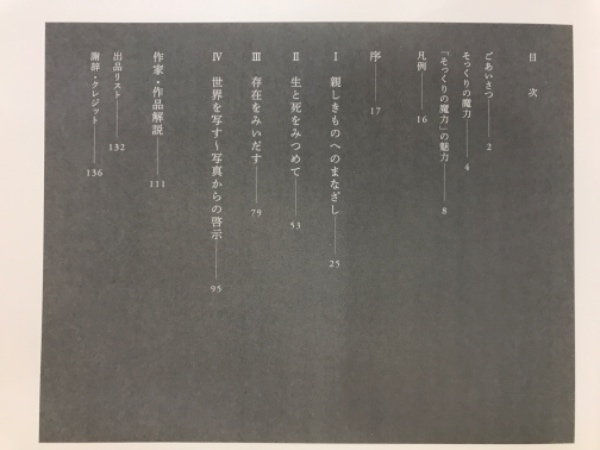 目次
ごあいさつ――2
そっくりの魔力――4
『そっくりの魔力』の魅力――8
凡例――16
序――17
Ⅰ 親しきものへのまなざし――25
Ⅱ 生と死をみつめて――53
Ⅲ 存在をみいだす――79
Ⅳ 世界を写す～写真からの啓示――95
作家・作品解説――111
出品リスト――132
謝辞・クレジット――136